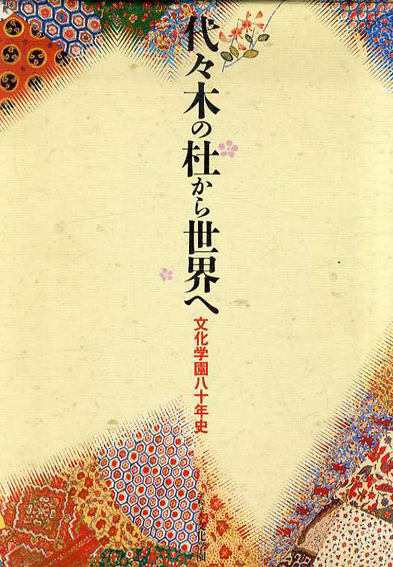 代々木の杜から世界へ
文化学園八十年史